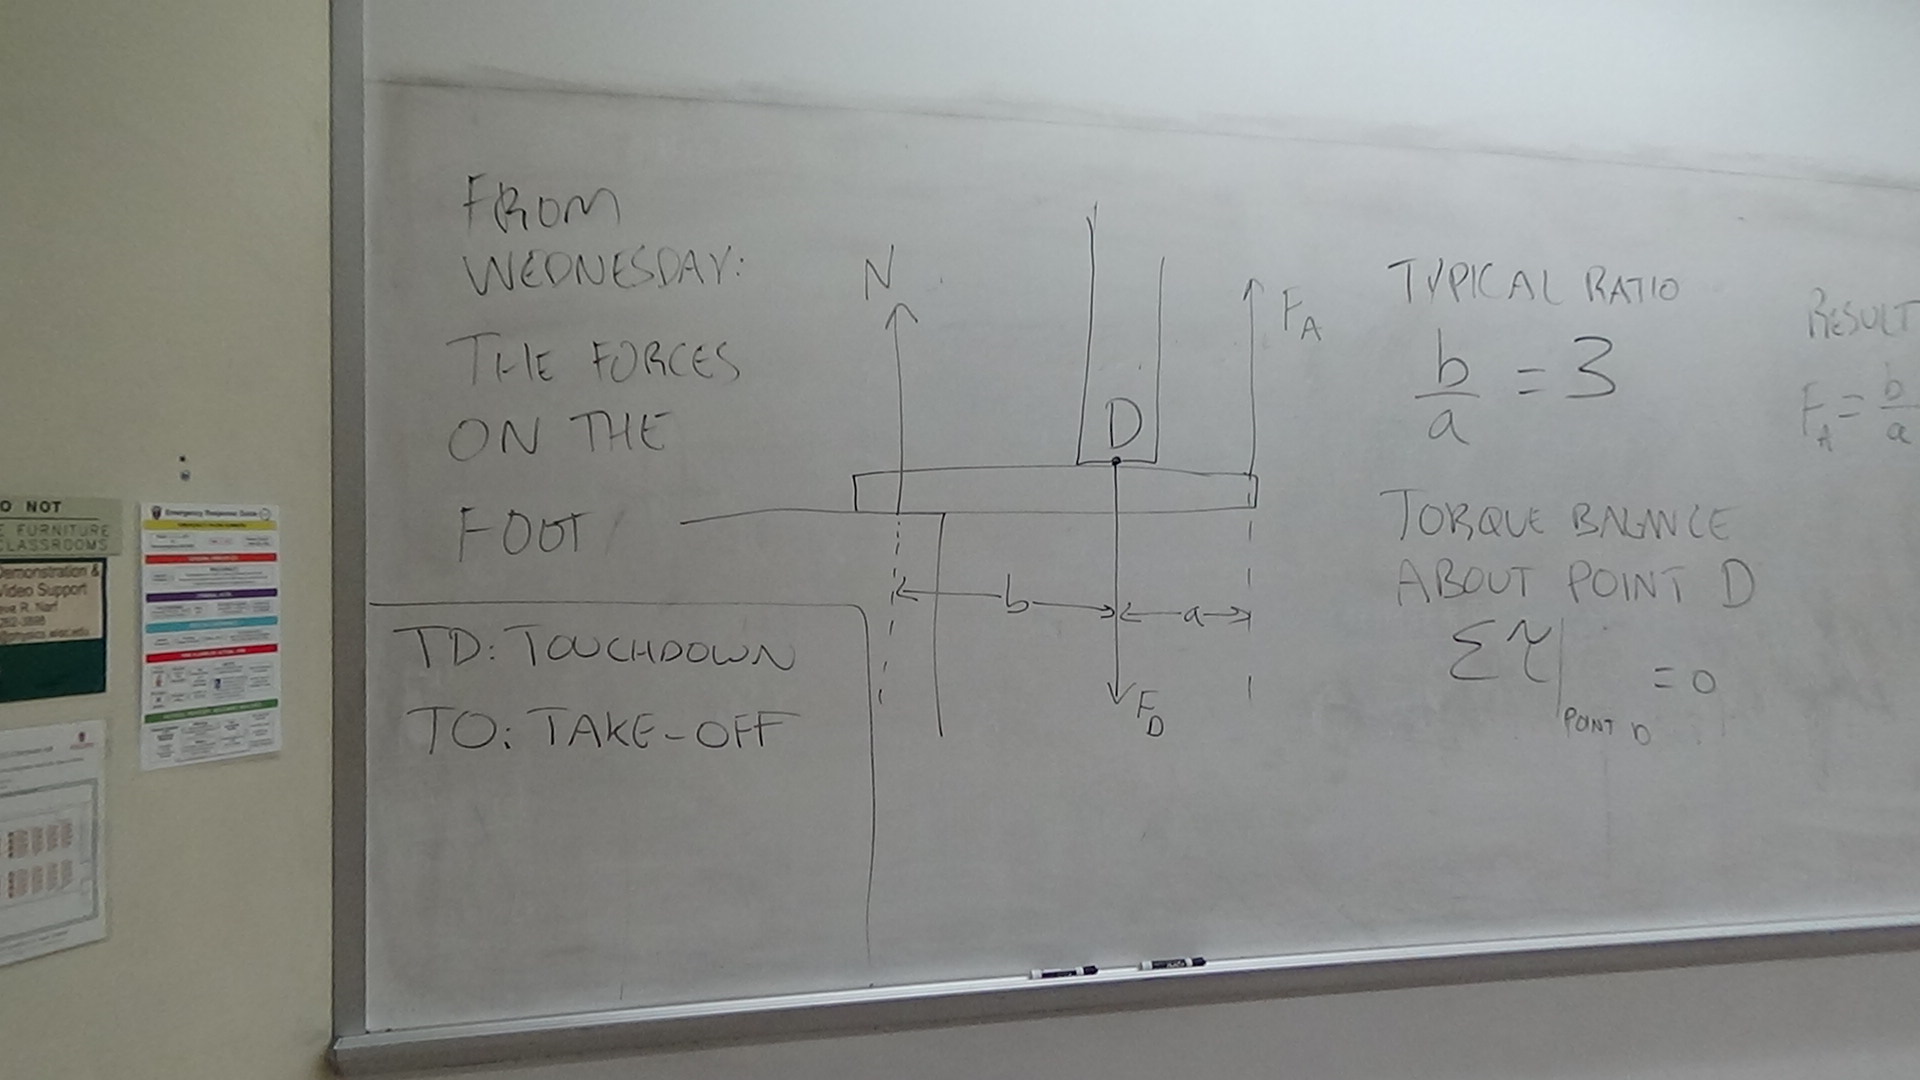 FROM
WEDNESDAY:
THE FORCES
ON THE
FOOT
TD: TOUCHDOWN
TO: TAKE-OFF
N
D
F_A
b
a
F_D
TYPICAL RATIO
b/a = 3
TORQUE BALANCE
ABOUT POINT D
Στ|POINT D = 0
RESULT
F_A = b/a
O NOT
E FURNITURE
CLASSROOMS
Demonstration &
Video Support
eve R. Narf
262-3898
@physics.wisc.edu
Emergency Response Guide